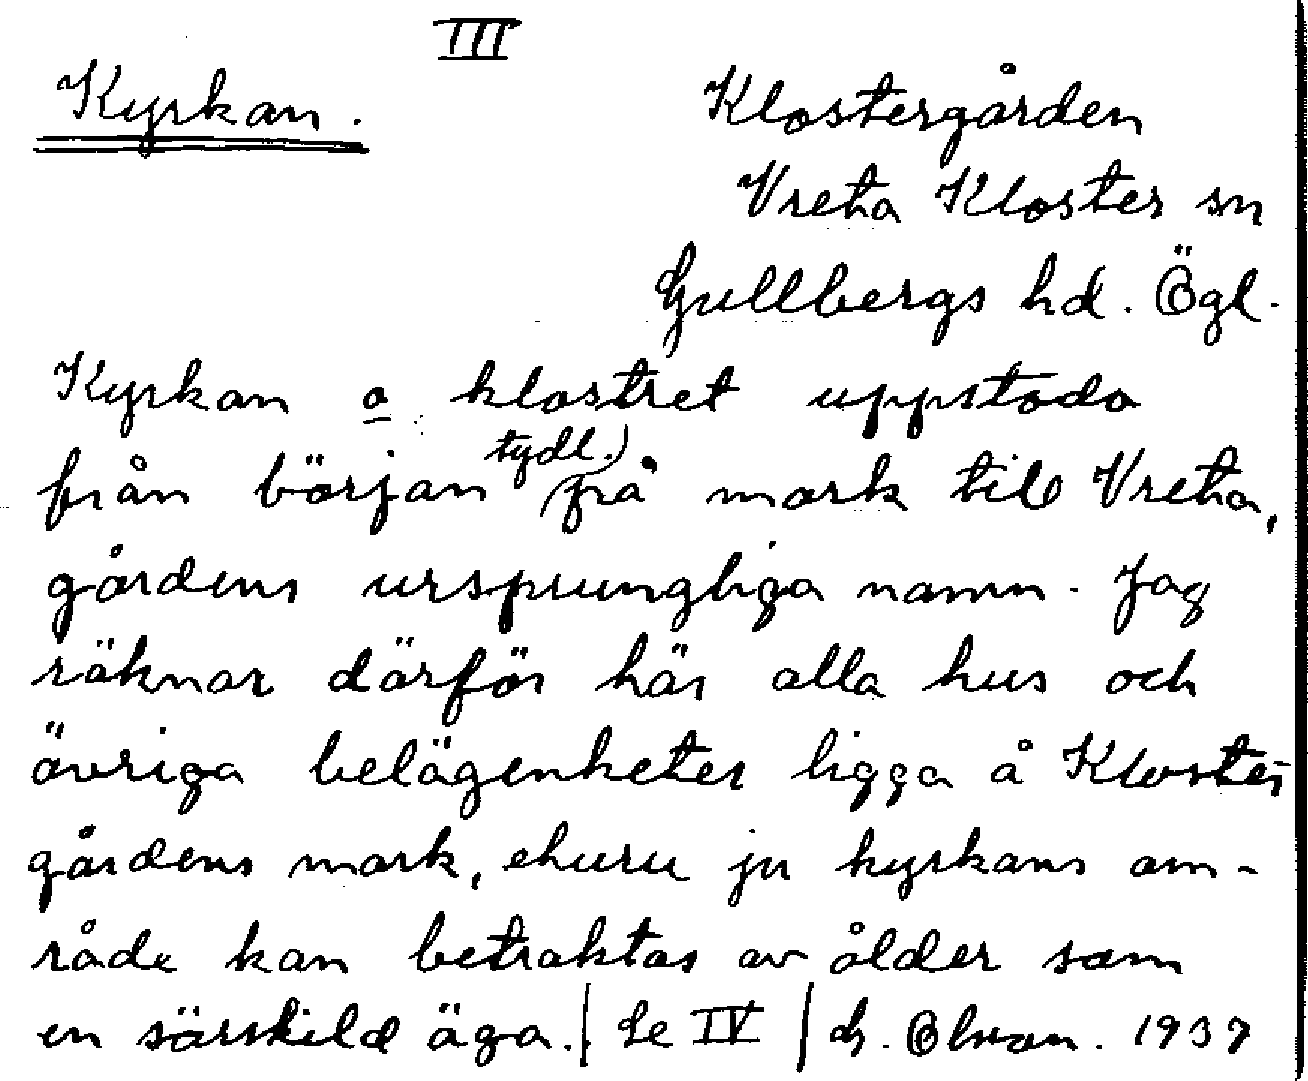 III
Kyrkan.
Klostergården
Vreta Kloster sn
Gullbergs hd. Ögl.
Kyrkan o klostret uppstodo
från början tydl. på mark till Vreta,
gårdens ursprungliga namn. Jag
räknar därför här alla hus och
övriga belägenheter ligga å Kloster-
gårdens mark, ehuru ju kyrkans om-
råde kan betraktas av ålder som
en särskild äga. | Se IV | 1937